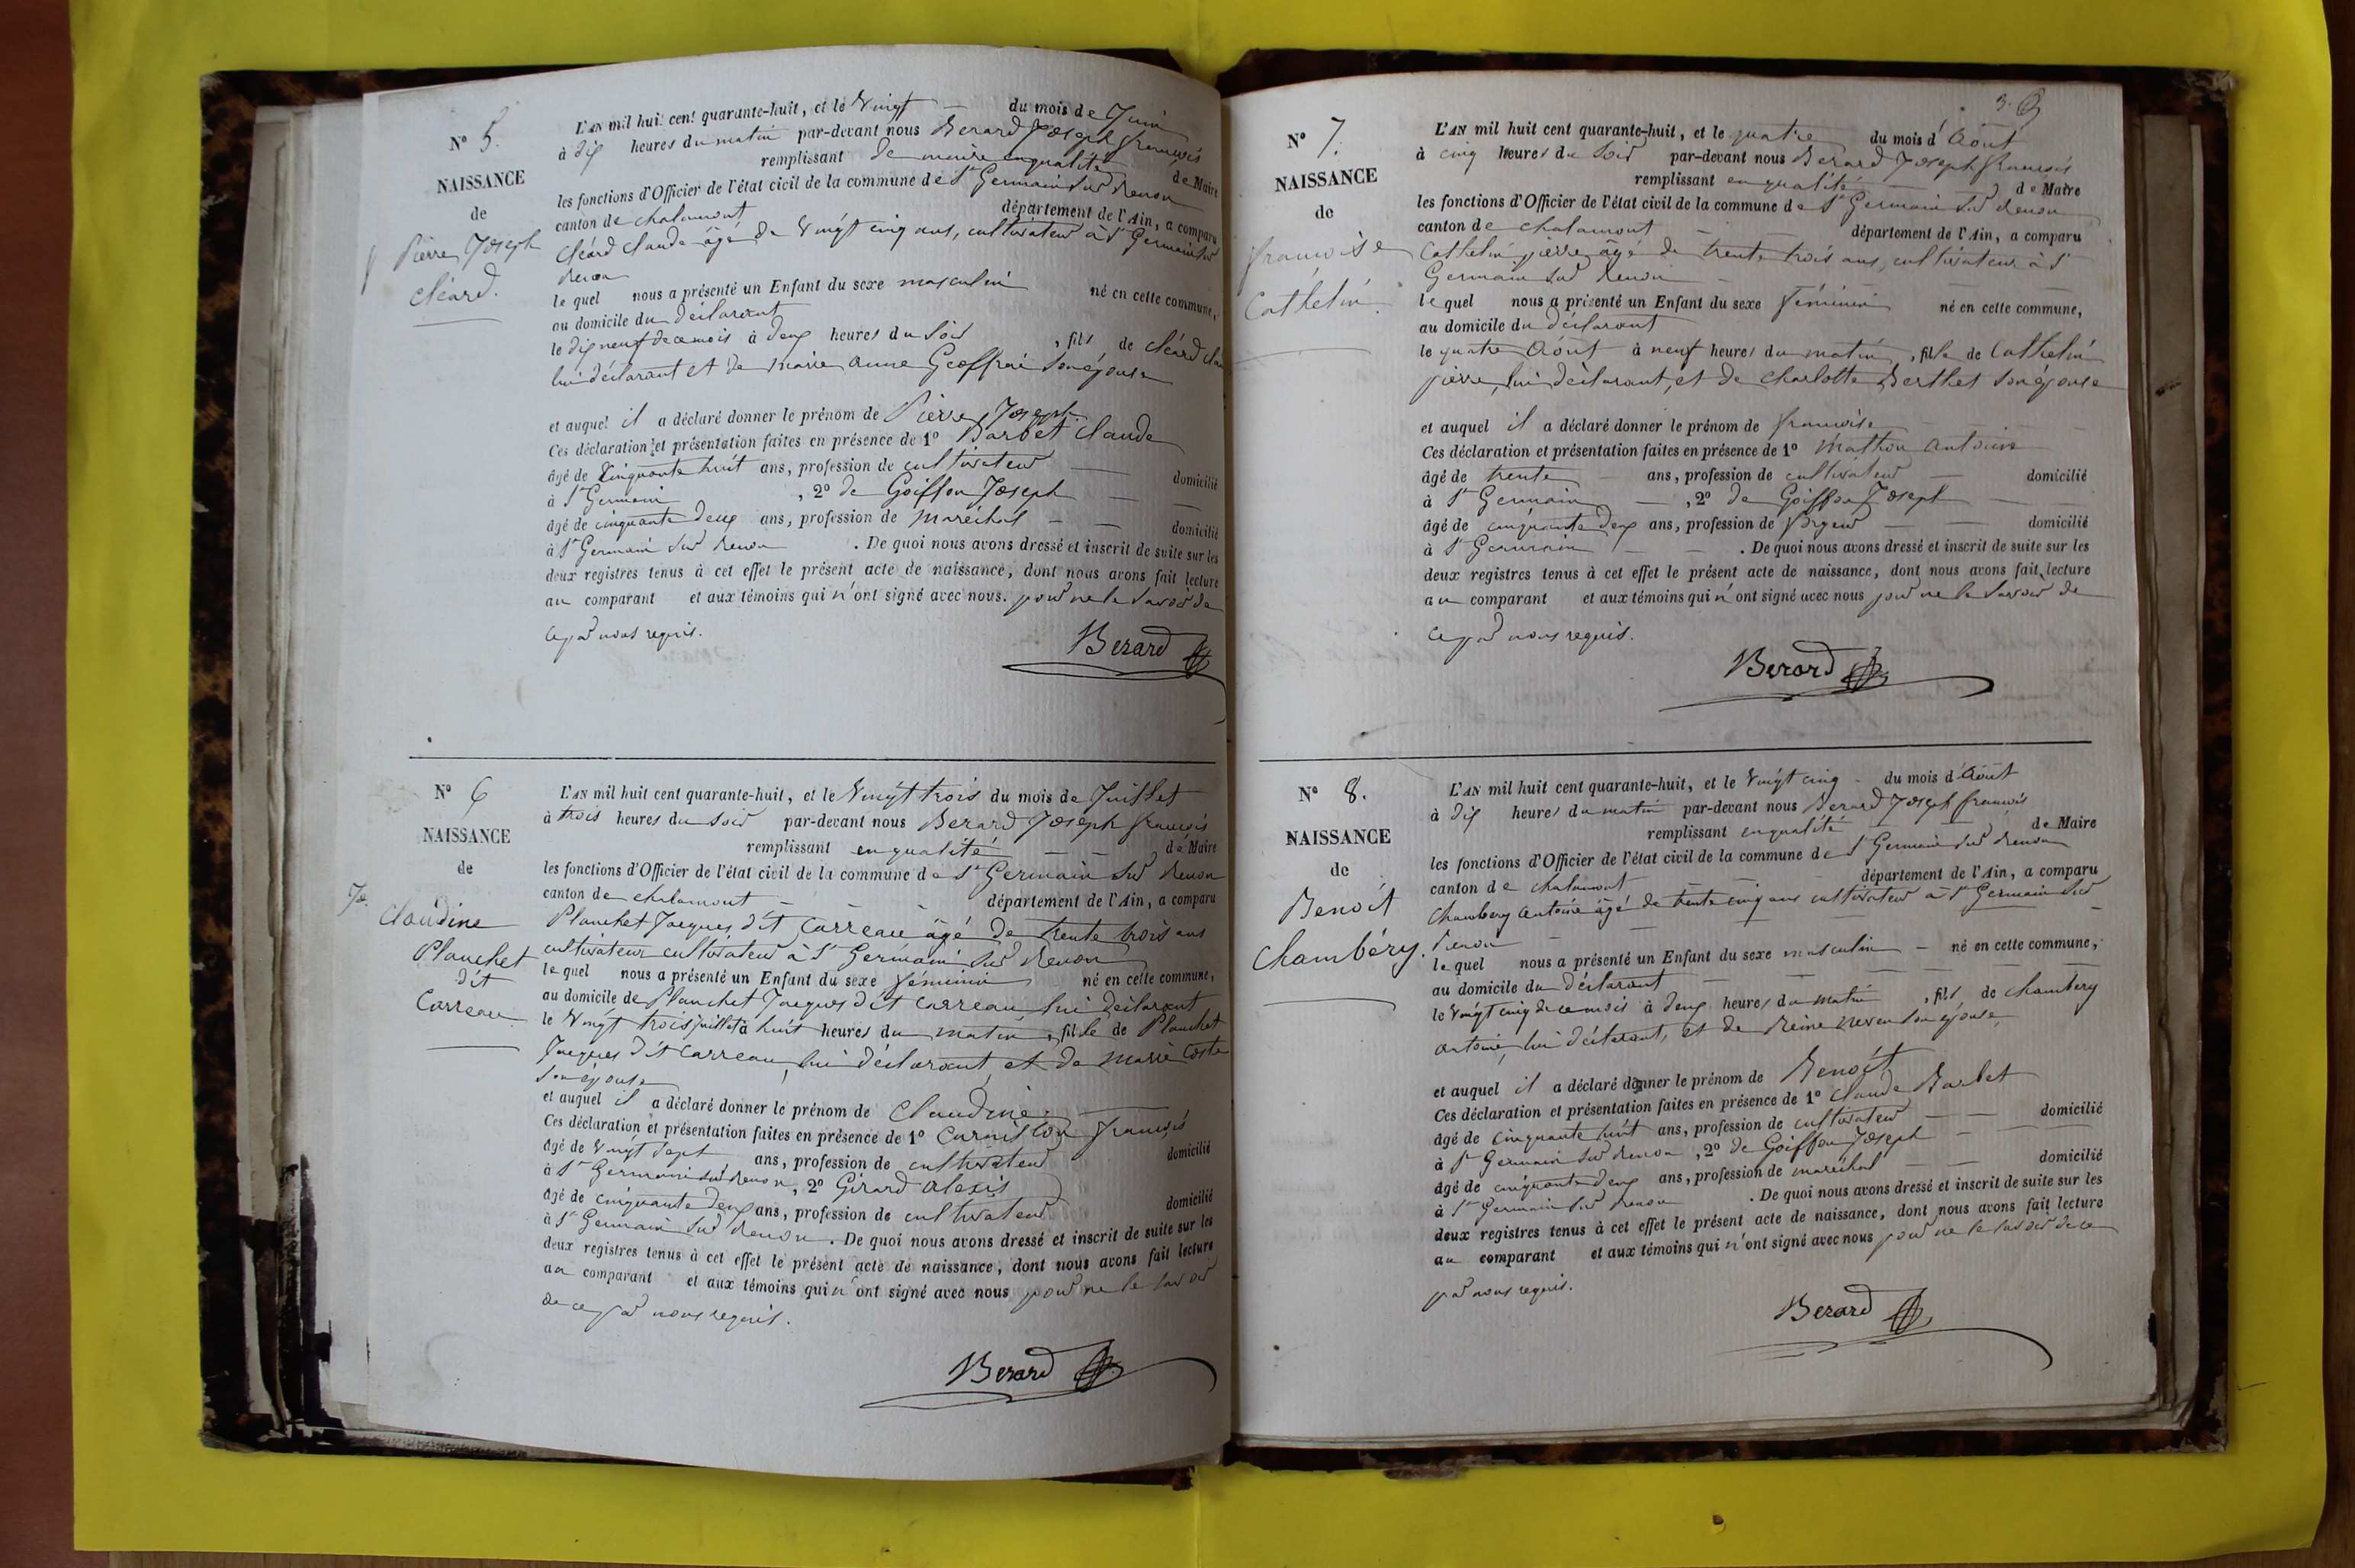 N° 5.
NAISSANCE
de
Pierre Joseph
cléard.
L'AN mil huit cent quarante-huit, et le Vingt du mois de Juin
à dix heures du matin par-devant nous Berard Joseph françois
remplissant de maire en qualité de Maire
les fonctions d'Officier de l'état civil de la commune de St Germain Sur Renon
canton de chalamont département de l'Ain, a comparu
cléard claude âgé de Vingt cinq ans, cultivateur à St Germain Sur
Renon
le quel nous a présenté un Enfant du sexe masculin né en cette commune,
au domicile du déclarant
le dix neuf de ce mois à deux heures du Soir, fils de cléard
lui déclarant et de marie anne Geoffrai Son épouse
et auquel il a déclaré donner le prénom de Pierre Joseph
Ces déclaration et présentation faites en présence de 1° Barbet claude
âgé de Cinquante huit ans, profession de cultivateur domicilié
à St Germain, 2° de Goiffon Joseph
âgé de cinquante deux ans, profession de Maréchal domicilié
à St Germain Sur Renon. De quoi nous avons dressé et inscrit de suite sur les
deux registres tenus à cet effet le présent acte de naissance, dont nous avons fait lecture
au comparant et aux témoins qui n'ont signé avec nous. pour ne le Savoir de
ce par nous requis.
Berard
N° 6
NAISSANCE
de
Claudine
Planchet
dit
Carreau
L'AN mil huit cent quarante-huit, et le Vingt trois du mois de Juillet
à trois heures du Soir par-devant nous Berard Joseph françois
remplissant en qualité de Maire
les fonctions d'Officier de l'état civil de la commune de St Germain Sur Renon
canton de chalamont département de l'Ain, a comparu
Planchet Jacques dit Carreau âgé de trente trois ans
cultivateur cultivateur à St Germain Sur Renon
le quel nous a présenté un Enfant du sexe féminin né en cette commune,
au domicile de Planchet Jacques dit Carreau, lui déclarant
le Vingt trois juillet à huit heures du matin, fille de Planchet
Jacques dit Carreau, lui déclarant, et de Marie Coste
Son épouse
et auquel il a déclaré donner le prénom de Claudine
Ces déclaration et présentation faites en présence de 1° françois
âgé de Vingt Sept ans, profession de cultivateur domicilié
à St Germain Sur Renon, 2° Girard Alexis
âgé de cinquante deux ans, profession de cultivateur domicilié
à St Germain Sur Renon. De quoi nous avons dressé et inscrit de suite sur les
deux registres tenus à cet effet le présent acte de naissance, dont nous avons fait lecture
au comparant et aux témoins qui n'ont signé avec nous pour ne le Savoir
de ce par nous requis.
Berard
3.
N° 7.
NAISSANCE
de
françoise
Cathelin.
L'AN mil huit cent quarante-huit, et le quatre du mois d'Aout
à cinq heures du Soir par-devant nous Berard Joseph françois
remplissant en qualité de Maire
les fonctions d'Officier de l'état civil de la commune de St Germain Sur Renon
canton de chalamont département de l'Ain, a comparu
Cathelin pierre âgé de trente trois ans, cultivateur à St
Germain Sur Renon
le quel nous a présenté un Enfant du sexe féminin né en cette commune,
au domicile du déclarant
le quatre Août à neuf heures du matin, fille de Cathelin
pierre, lui déclarant, et de Charlotte Berthet Son épouse
et auquel il a déclaré donner le prénom de françoise
Ces déclaration et présentation faites en présence de 1° Mathon antoine
âgé de trente ans, profession de cultivateur domicilié
à St Germain, 2° de Goiffon Joseph
âgé de cinquante deux ans, profession de domicilié
à St Germain. De quoi nous avons dressé et inscrit de suite sur les
deux registres tenus à cet effet le présent acte de naissance, dont nous avons fait lecture
au comparant et aux témoins qui n'ont signé avec nous pour ne le Savoir de
ce par nous requis.
Berard
N° 8.
NAISSANCE
de
Benoit
Chambéry.
L'AN mil huit cent quarante-huit, et le Vingt cinq du mois d'Aout
à dix heures du matin par-devant nous Berard Joseph françois
remplissant en qualité de Maire
les fonctions d'Officier de l'état civil de la commune de St Germain Sur Renon
canton de chalamont département de l'Ain, a comparu
Chambery Antoine âgé de trente cinq ans cultivateur à St Germain Sur
Renon
le quel nous a présenté un Enfant du sexe masculin né en cette commune,
au domicile du déclarant
le Vingt cinq de ce mois à deux heures du matin, fils de chambery
antoine, lui déclarant, et de Reine Neveu Son épouse
et auquel il a déclaré donner le prénom de Benoit
Ces déclaration et présentation faites en présence de 1° Claude Barbet
âgé de cinquante huit ans, profession de cultivateur domicilié
à St Germain Sur Renon, 2° de Goiffon Joseph
âgé de cinquante deux ans, profession de maréchal domicilié
à St Germain Sur Renon. De quoi nous avons dressé et inscrit de suite sur les
deux registres tenus à cet effet le présent acte de naissance, dont nous avons fait lecture
au comparant et aux témoins qui n'ont signé avec nous pour ne le Savoir de ce
par nous requis.
Berard